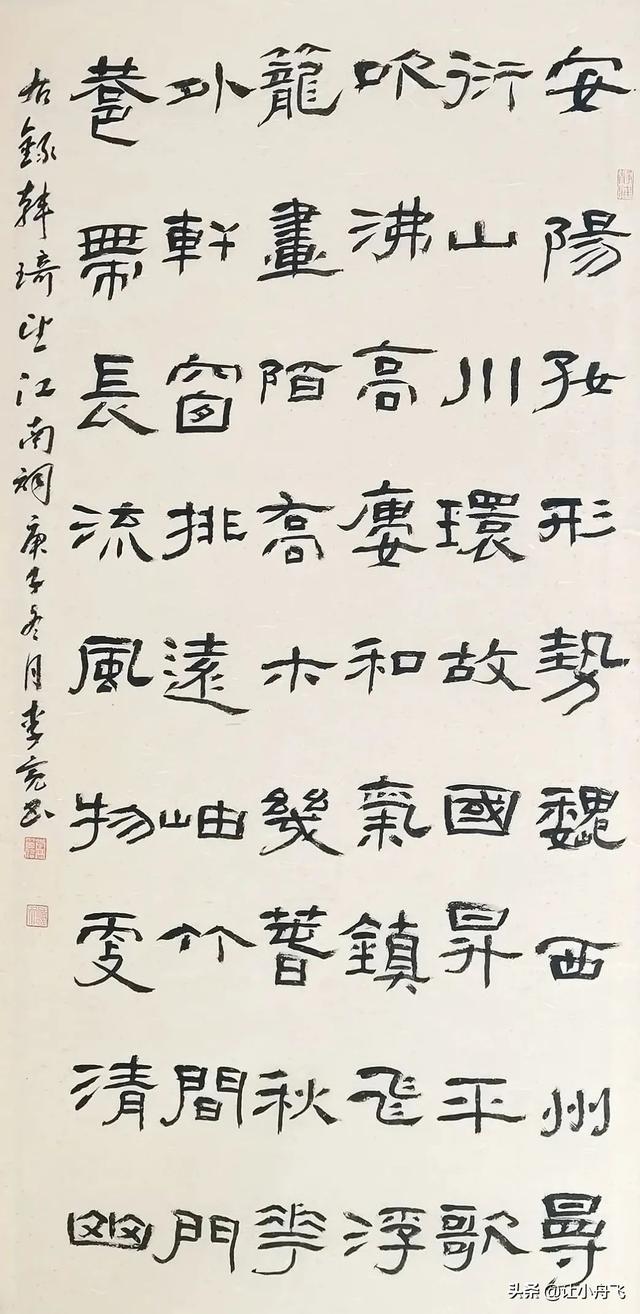 安陽好形勢魏西州曼
衍山川環故國昇平歌
吹沸高廔和氣鎮飛浮
籠畫陌喬木幾萅秋花
外軒窗排遠岫竹間門
巷帶長流風物更清幽
右錄韓琦望江南詞庚子冬月李亮书
头条 @让小舟飞